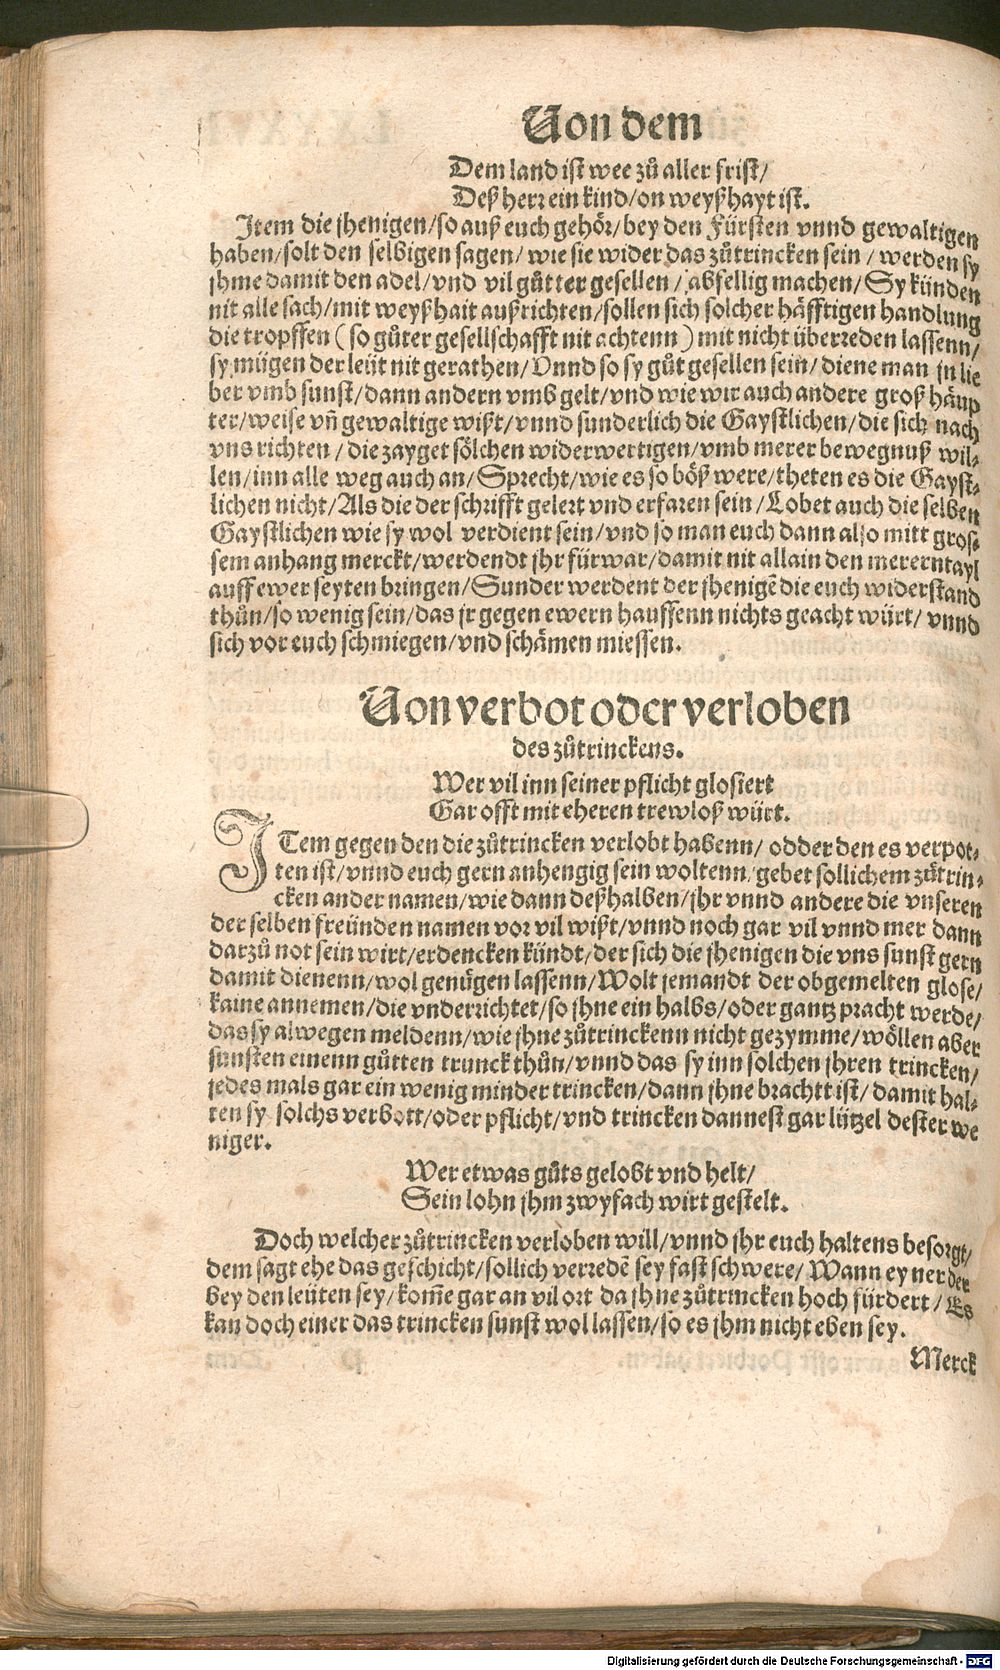 Von dem
Dem land ist wee zů aller frist/
Deß herr ein kind/on weyßhayt ist.
Item die jhenigen/so auß euch gehör/bey den Fürsten vnnd gewaltigen
haben/solt den selbigen sagen/wie sie wider das zůtrincken sein/werden sy
jhme damit den adel/vnd vil gůtter gesellen/abfellig machen/Sy künden
nit alle sach/mit weyßhait außrichten/sollen sich solcher häfftigen handlung
die tropffen (so gůter gesellschafft nit achtenn) mit nicht überreden lassenn/
sy mügen der leüt nit gerathen/Vnnd so sy gůt gesellen sein/diene man jn lie
ber vmb sunst/dann andern vmb gelt/vnd wie wir auch andere groß häup
ter/weise vñ gewaltige wißt/vnnd sunderlich die Gaystlichen/die sich nach
vns richten/die zayget sölchen widerwertigen/vmb merer bewegnuß wil-
len/inn alle weg auch an/Sprecht/wie es so böß were/theten es die Gayst-
lichen nicht/Als die der schrifft gelert vnd erfaren sein/Lobet auch die selben
Gaystlichen wie sy wol verdient sein/vnd so man euch dann also mitt gros-
sem anhang merckt/werdendt jhr fürwar/damit nit allain den mererntayl
auff ewer seyten bringen/Sunder werdent der jhenigẽ die euch widerstand
thůn/so wenig sein/das jr gegen ewern hauffenn nichts geacht würt/vnnd
sich vor euch schmiegen/vnd schämen miessen.
Von verbot oder verloben
des zůtrinckens.
Wer vil inn seiner pflicht glosiert
Gar offt mit eheren trewloß würt.
ITem gegen den die zůtrincken verlobt habenn/odder den es verpot-
ten ist/vnnd euch gern anhengig sein woltenn/gebet sollichem zůtrin-
cken ander namen/wie dann deßhalben/jhr vnnd andere die vnseren
der selben freünden namen vor vil wißt/vnnd noch gar vil vnnd mer dann
darzů not sein wirt/erdencken kündt/der sich die jhenigen die vns sunst gern
damit dienenn/wol genügen lassenn/Wolt jemandt der obgemelten glose/
kaine annemen/die vnderrichtet/so jhne ein halbs/oder gantz pracht werde/
das sy alwegen meldenn/wie jhne zůtrinckenn nicht gezymme/wöllen aber
sunsten einenn gůtten trunck thůn/vnnd das sy inn solchen jhren trincken/
jedes mals gar ein wenig minder trincken/dann jhne brachtt ist/damit hal-
ten sy solchs verbott/oder pflicht/vnd trincken dannest gar lützel dester we
niger.
Wer etwas gůts gelobt vnd helt/
Sein lohn jhm zwyfach wirt gestelt.
Doch welcher zůtrincken verloben will/vnnd jhr euch haltens besorgt/
dem sagt ehe das geschicht/sollich verredẽ sey fast schwere/Wann eyner der
bey den leüten sey/kom̃e gar an vil ort da jhne zůtrincken hoch fürdert/Es
kan doch einer das trincken sunst wol lassen/so es jhm nicht eben sey.
Merck
Digitalisierung gefördert durch die Deutsche Forschungsgemeinschaft - DFG